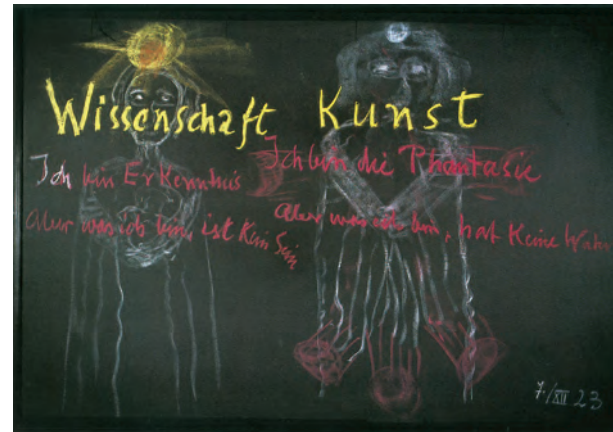 Wissenschaft Kunst
Ich bin Erkenntnis
aber was ich bin, ist kein Sein
Ich bin die Phantasie
aber was ich bin, hat keine Wahr
7./XII 23